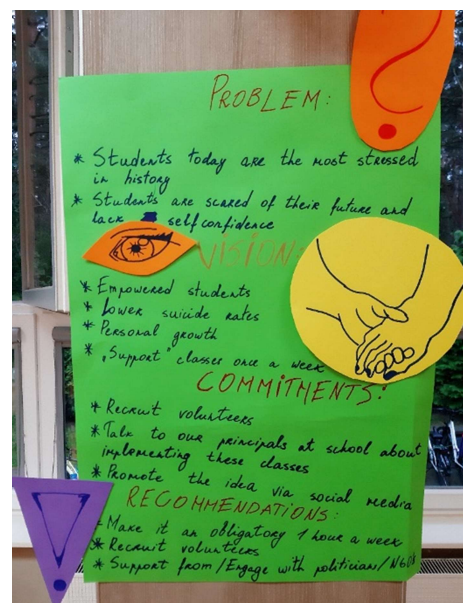 PROBLEM:
* Students today are the most stressed
in history
* Students are scared of their future and
lack self confidence
VISION:
* Empowered students
* Lower suicide rates
* Personal growth
* „Support" classes once a week
COMMITMENTS:
* Recruit volunteers
* Talk to our principals at school about
implementing these classes
* Promote the idea via social media
RECOMMENDATIONS:
- Make it an obligatory 1 hour a week
* Recruit volunteers
* Support from/Engage with politician/NGOs